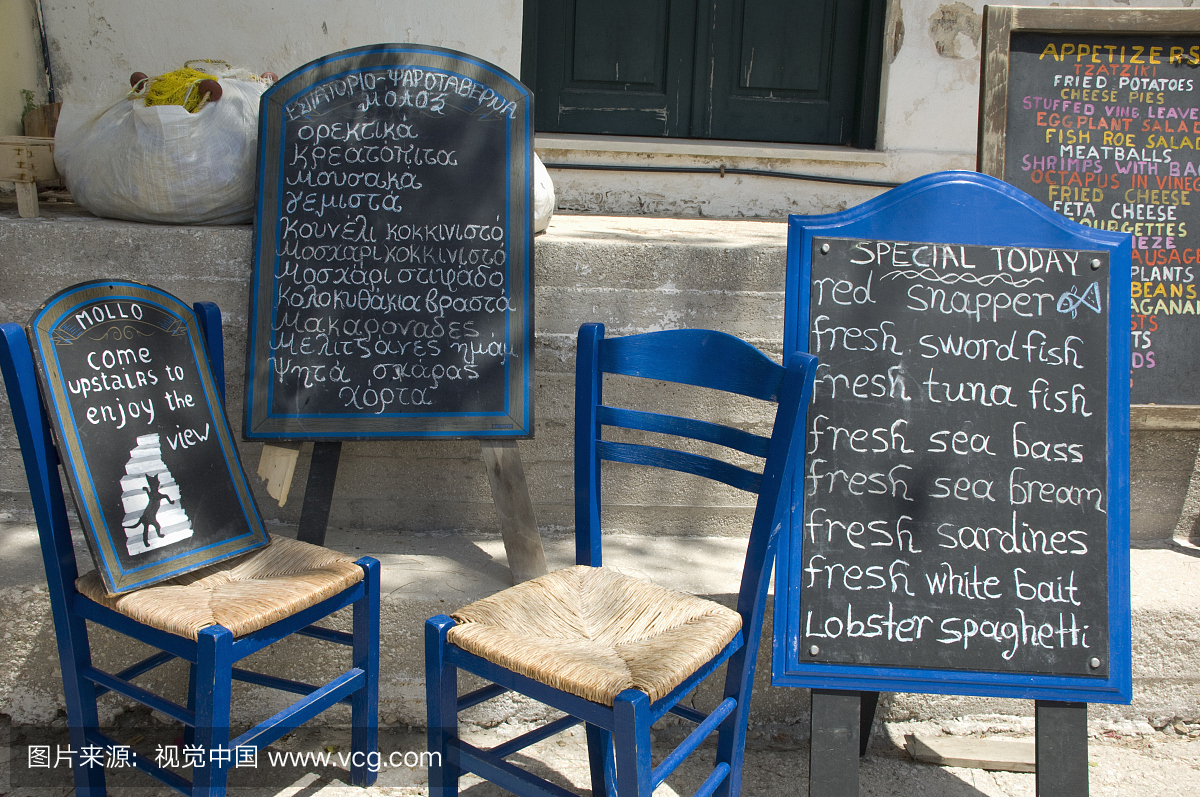 MOLLO
come
upstairs to
enjoy the
view
ΕΣΤΙΑΤΟΡΙΟ-ΨΑΡΟΤΑΒΕΡΝΑ
ΜΟΛΟΣ
ορεκτικά
Κρεατόπιτα
Μουσακα
γεμιστά
Κουνέλι κοκκινιστό
Μοσχάρι κοκκινιστό
Μοσχάρι στιφάδο
Κολοκυθάκια βραστά
Μακαρονάδες
Μελιτζάνες ημάμ
Ψητά σχάρας
Χόρτα
SPECIAL TODAY
red snapper
fresh swordfish
fresh tuna fish
fresh sea bass
fresh sea bream
fresh sardines
fresh white bait
Lobster spaghetti
APPETIZERS
TZATZIKI
FRIED POTATOES
CHEESE PIES
STUFFED VINE LEAVE
EGGPLANT SALAD
FISH ROE SALAD
MEATBALLS
SHRIMPS WITH BA
OCTAPUS IN VINEG
FRIED CHEESE
FETA CHEESE
OURGETTES
EZE
AUSAGE
PLANTS
BEANS
AGANA
TS
DS
图片来源：视觉中国 www.vcg.com